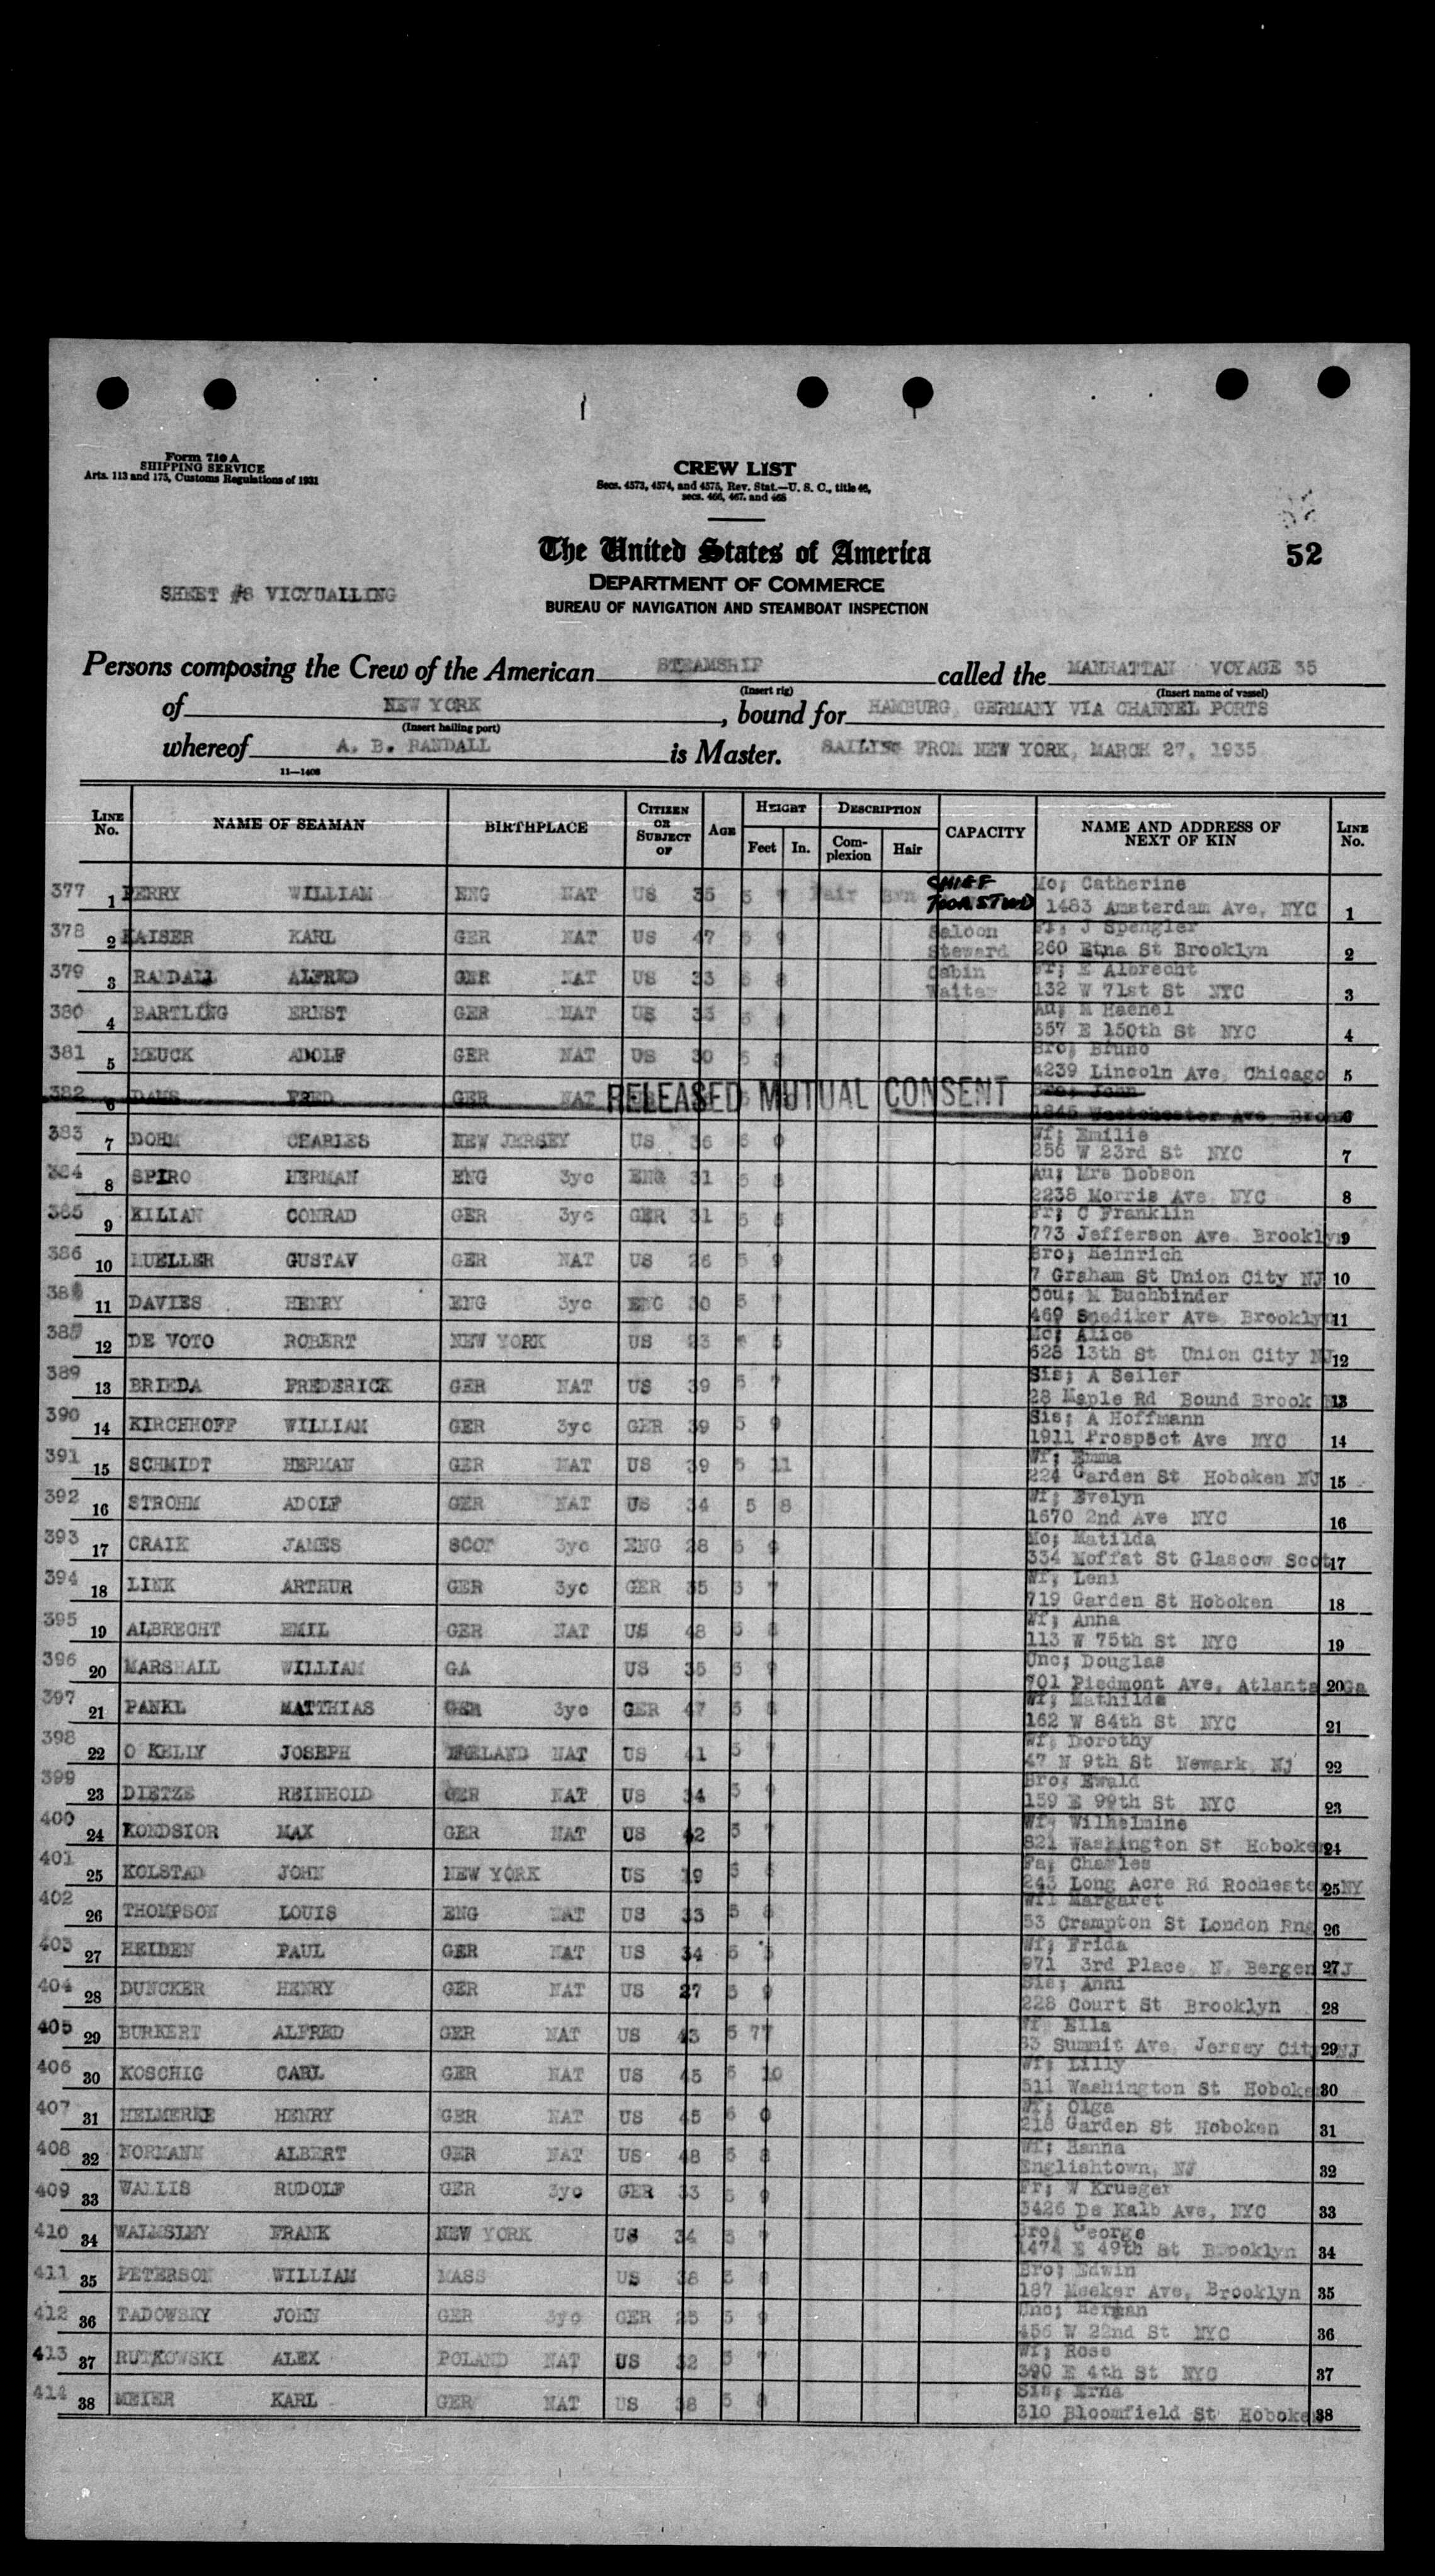 Form 710 A
SHIPPING SERVICE
Arts. 113 and 175, Customs Regulations of 1931
CREW LIST
Secs. 4573, 4574, and 4575, Rev. Stat.—U. S. C., title 46,
secs. 466, 467, and 468
The United States of America
52
DEPARTMENT OF COMMERCE
SHEET #8 VICYUALLING
BUREAU OF NAVIGATION AND STEAMBOAT INSPECTION
Persons composing the Crew of the American STEAMSHIP called the MANHATTAN VOYAGE 35
(Insert rig) (Insert name of vessel)
of NEW YORK, bound for HAMBURG, GERMANY VIA CHANNEL PORTS
(Insert hailing port)
whereof A. B. RANDALL is Master. SAILING FROM NEW YORK, MARCH 27, 1935
11—1408
LINE No. NAME OF SEAMAN BIRTHPLACE CITIZEN OR SUBJECT OF AGE HEIGHT Feet In. DESCRIPTION Complexion Hair CAPACITY NAME AND ADDRESS OF NEXT OF KIN LINE No.
377 1 PERRY WILLIAM ENG NAT US 35 5 Fair Brn CHIEF Mo; Catherine
1483 Amsterdam Ave, NYC 1
378 2 KAISER KARL GER NAT US 47 5 9 Saloon Steward Fr; J Spengler
260 Etna St Brooklyn 2
379 3 RANDALL ALFRED GER NAT US 33 5 8 Cabin Waiter Fr; E Albrecht
132 W 71st St NYC 3
380 4 BARTLING ERNST GER NAT US 5 Au; M Haenel
357 E 150th St NYC 4
381 5 HEUCK ADOLF GER NAT US 30 5 Bro; Bruno
4239 Lincoln Ave, Chicago 5
382 6 DAMS FRED GER NAT RELEASED MUTUAL CONSENT Bro; John
1845 Westchester Ave Bronx 6
383 7 DOHM CHARLES NEW JERSEY US 36 Wf; Emilie
256 W 23rd St NYC 7
384 8 SPIRO HERMAN ENG 3yc ENG 31 5 8 Au; Mrs Dobson
2238 Morris Ave NYC 8
385 9 KILIAN CONRAD GER 3yc GER 31 5 Fr; C Franklin
773 Jefferson Ave Brooklyn 9
386 10 MUELLER GUSTAV GER NAT US 26 5 9 Bro; Heinrich
7 Graham St Union City NJ 10
11 DAVIES HENRY ENG 3yc ENG 30 5 7 Cou; M Buchbinder
469 Snediker Ave, Brooklyn 11
12 DE VOTO ROBERT NEW YORK US 23 5 Mo; Alice
628 13th St Union City NJ 12
389 13 BRIEDA FREDERICK GER NAT US 39 5 7 Sis; A Seiler
28 Maple Rd Bound Brook NJ 13
390 14 KIRCHHOFF WILLIAM GER 3yc GER 39 5 9 Sis; A Hoffmann
1911 Prospect Ave NYC 14
391 15 SCHMIDT HERMAN GER NAT US 39 5 11 Wf; Emma
224 Garden St Hoboken NJ 15
392 16 STROHM ADOLF GER NAT US 34 5 8 Wf; Evelyn
1670 2nd Ave NYC 16
393 17 CRAIK JAMES SCOT 3yc ENG 28 5 9 Mo; Matilda
334 Moffat St Glascow Scot 17
394 18 LINK ARTHUR GER 3yc GER 35 5 7 Wf; Leni
719 Garden St Hoboken 18
395 19 ALBRECHT EMIL GER NAT US 48 5 8 Wf; Anna
113 W 75th St NYC 19
396 20 MARSHALL WILLIAM GA US 35 5 9 Unc; Douglas
701 Piedmont Ave, Atlanta Ga 20
397 21 PANKL MATTHIAS GER 3yc GER 47 5 8 Wf; Mathilde
162 W 84th St NYC 21
398 22 O KELLY JOSEPH IRELAND NAT US 41 5 7 Wf; Dorothy
47 N 9th St Newark, Nj 22
399 23 DIETZE REINHOLD GER NAT US 34 5 9 Bro; Ewald
159 E 99th St NYC 23
400 24 KONDSIOR MAX GER NAT US 42 5 7 Wf; Wilhelmine
821 Washington St Hoboken 24
401 25 KOLSTAD JOHN NEW YORK US 19 5 Fa; Charles
243 Long Acre Rd Rochester NY 25
402 26 THOMPSON LOUIS ENG NAT US 33 5 8 Wf; Margaret
53 Crampton St London Rng 26
403 27 HEIDEN PAUL GER NAT US 34 5 5 Wf; Frida
971 3rd Place, N. Bergen NJ 27
404 28 DUNCKER HENRY GER NAT US 27 5 9 Sis; Anni
228 Court St Brooklyn 28
405 29 BURKERT ALFRED GER NAT US 43 5 77 Wf; Ella
83 Summit Ave, Jersey City NJ 29
406 30 KOSCHIG CARL GER NAT US 45 5 10 Wf; Lilly
511 Washington St Hoboken 30
407 31 HELMERKE HENRY GER NAT US 45 6 0 Wf; Olga
218 Garden St Hoboken 31
408 32 NORMANN ALBERT GER NAT US 48 5 8 Wf; Hanna
Englishtown, NJ 32
409 33 WALLIS RUDOLF GER 3yc GER 33 5 9 Fr; W Krueger
3426 De Kalb Ave, NYC 33
410 34 WALMSLEY FRANK NEW YORK US 34 5 7 Bro; George
1474 E 49th St Brooklyn 34
411 35 PETERSON WILLIAM MASS US 38 5 8 Bro; Edwin
187 Meeker Ave, Brooklyn 35
412 36 TADOWSKY JOHN GER 3yc GER 25 5 9 Unc; Herman
456 W 22nd St NYC 36
413 37 RUTKOWSKI ALEX POLAND NAT US 32 5 7 Wf; Rose
390 E 4th St NYC 37
414 38 MEIER KARL GER NAT US 38 5 8 Sis; Erna
310 Bloomfield St Hoboken 38